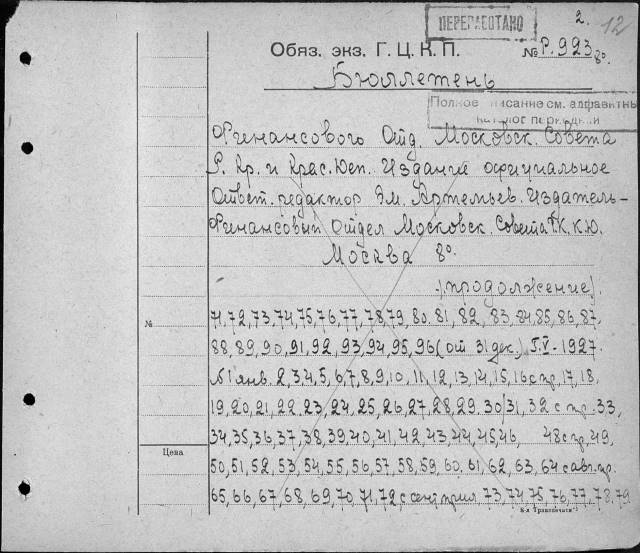 ПЕРЕРАБОТАНО
2.
12
Обяз. экз. Г.Ц.К.П. № Р.923/80.
Бюллетень
Полное описание см. алфавитный
каталог периодики
Финансового Отд. Московск. Совета
Р. Кр. и Крас. Деп. Издание официальное
Ответ. редактор Эм. Артемьев. Издатель-
Финансовый Отдел Московск. Совета Р.К.К.Ю.
Москва 8º.
(продолжение).
№
71, 72, 73, 74, 75, 76, 77, 78, 79, 80. 81, 82, 83, 84, 85, 86, 87,
88, 89, 90, 91, 92, 93, 94, 95, 96 (от 31 дек.) Г.V - 1927.
№1 янв. 2, 3, 4, 5, 6, 7, 8, 9, 10, 11, 12, 13, 14, 15, 16 с пр, 17, 18,
19, 20, 21, 22. 23, 24, 25, 26, 27, 28, 29. 30/31, 32 с пр. 33,
34, 35, 36, 37, 38, 39, 40, 41, 42, 43, 44, 45, 46, 48 с пр, 49,
Цена
50, 51, 52, 53, 54, 55, 56, 57, 58, 59, 60, 61, 62, 63, 64 с авг. пр.
65, 66, 67, 68, 69, 70, 71, 72 с сент прил 73, 74, 75, 76, 77, 78, 79